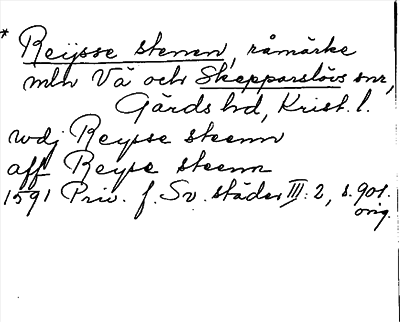 * Reijsse stenen, råmärke
mln Vä och Skepparslövs snr,
Gärds hd, Krist. l.
wdj Reysse steenn
aff Reysse steenn
1591 Priv. f. Sv. städer III: 2, s. 901.
orig.